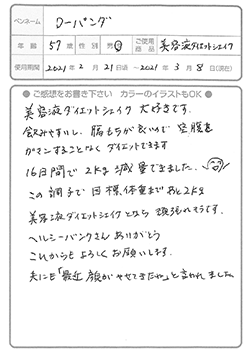 ペンネーム ローパンダ
年齢 57才 性別 男・女 ご使用商品 美容液ダイエットシェイク
使用期間 2021年 2月 21日頃〜2021年 3月 8日(現在)
● ご感想をお書き下さい カラーのイラストもOK ●
美容液ダイエットシェイク 大好きです。
飲みやすいし、腹もちが良いので 空腹を
ガマンすることなく ダイエットできます
16日間で 2kg 減量できました。
この調子で 目標体重まで あと2kg
美容液ダイエットシェイクとなら 頑張れそうです。
ヘルシーバンクさん ありがとう
これからも よろしくお願いします。
夫にも「最近 顔がやせてきたね」と言われました。